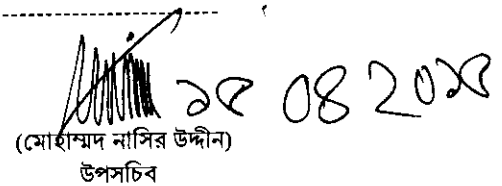 ১৫ ০৪ ২০১৫
(মোহাম্মদ নাসির উদ্দীন)
উপসচিব